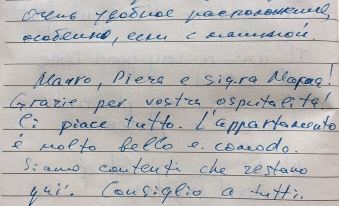 Очень удобное расположение,
особенно, если с машиной.
Mauro, Piera e sigra Мараа!
Grazie per vostra ospitalità!
Ci piace tutto. L'appartamento
è molto bello e comodo.
Siamo contenti che restano
qui. Consiglio a tutti.